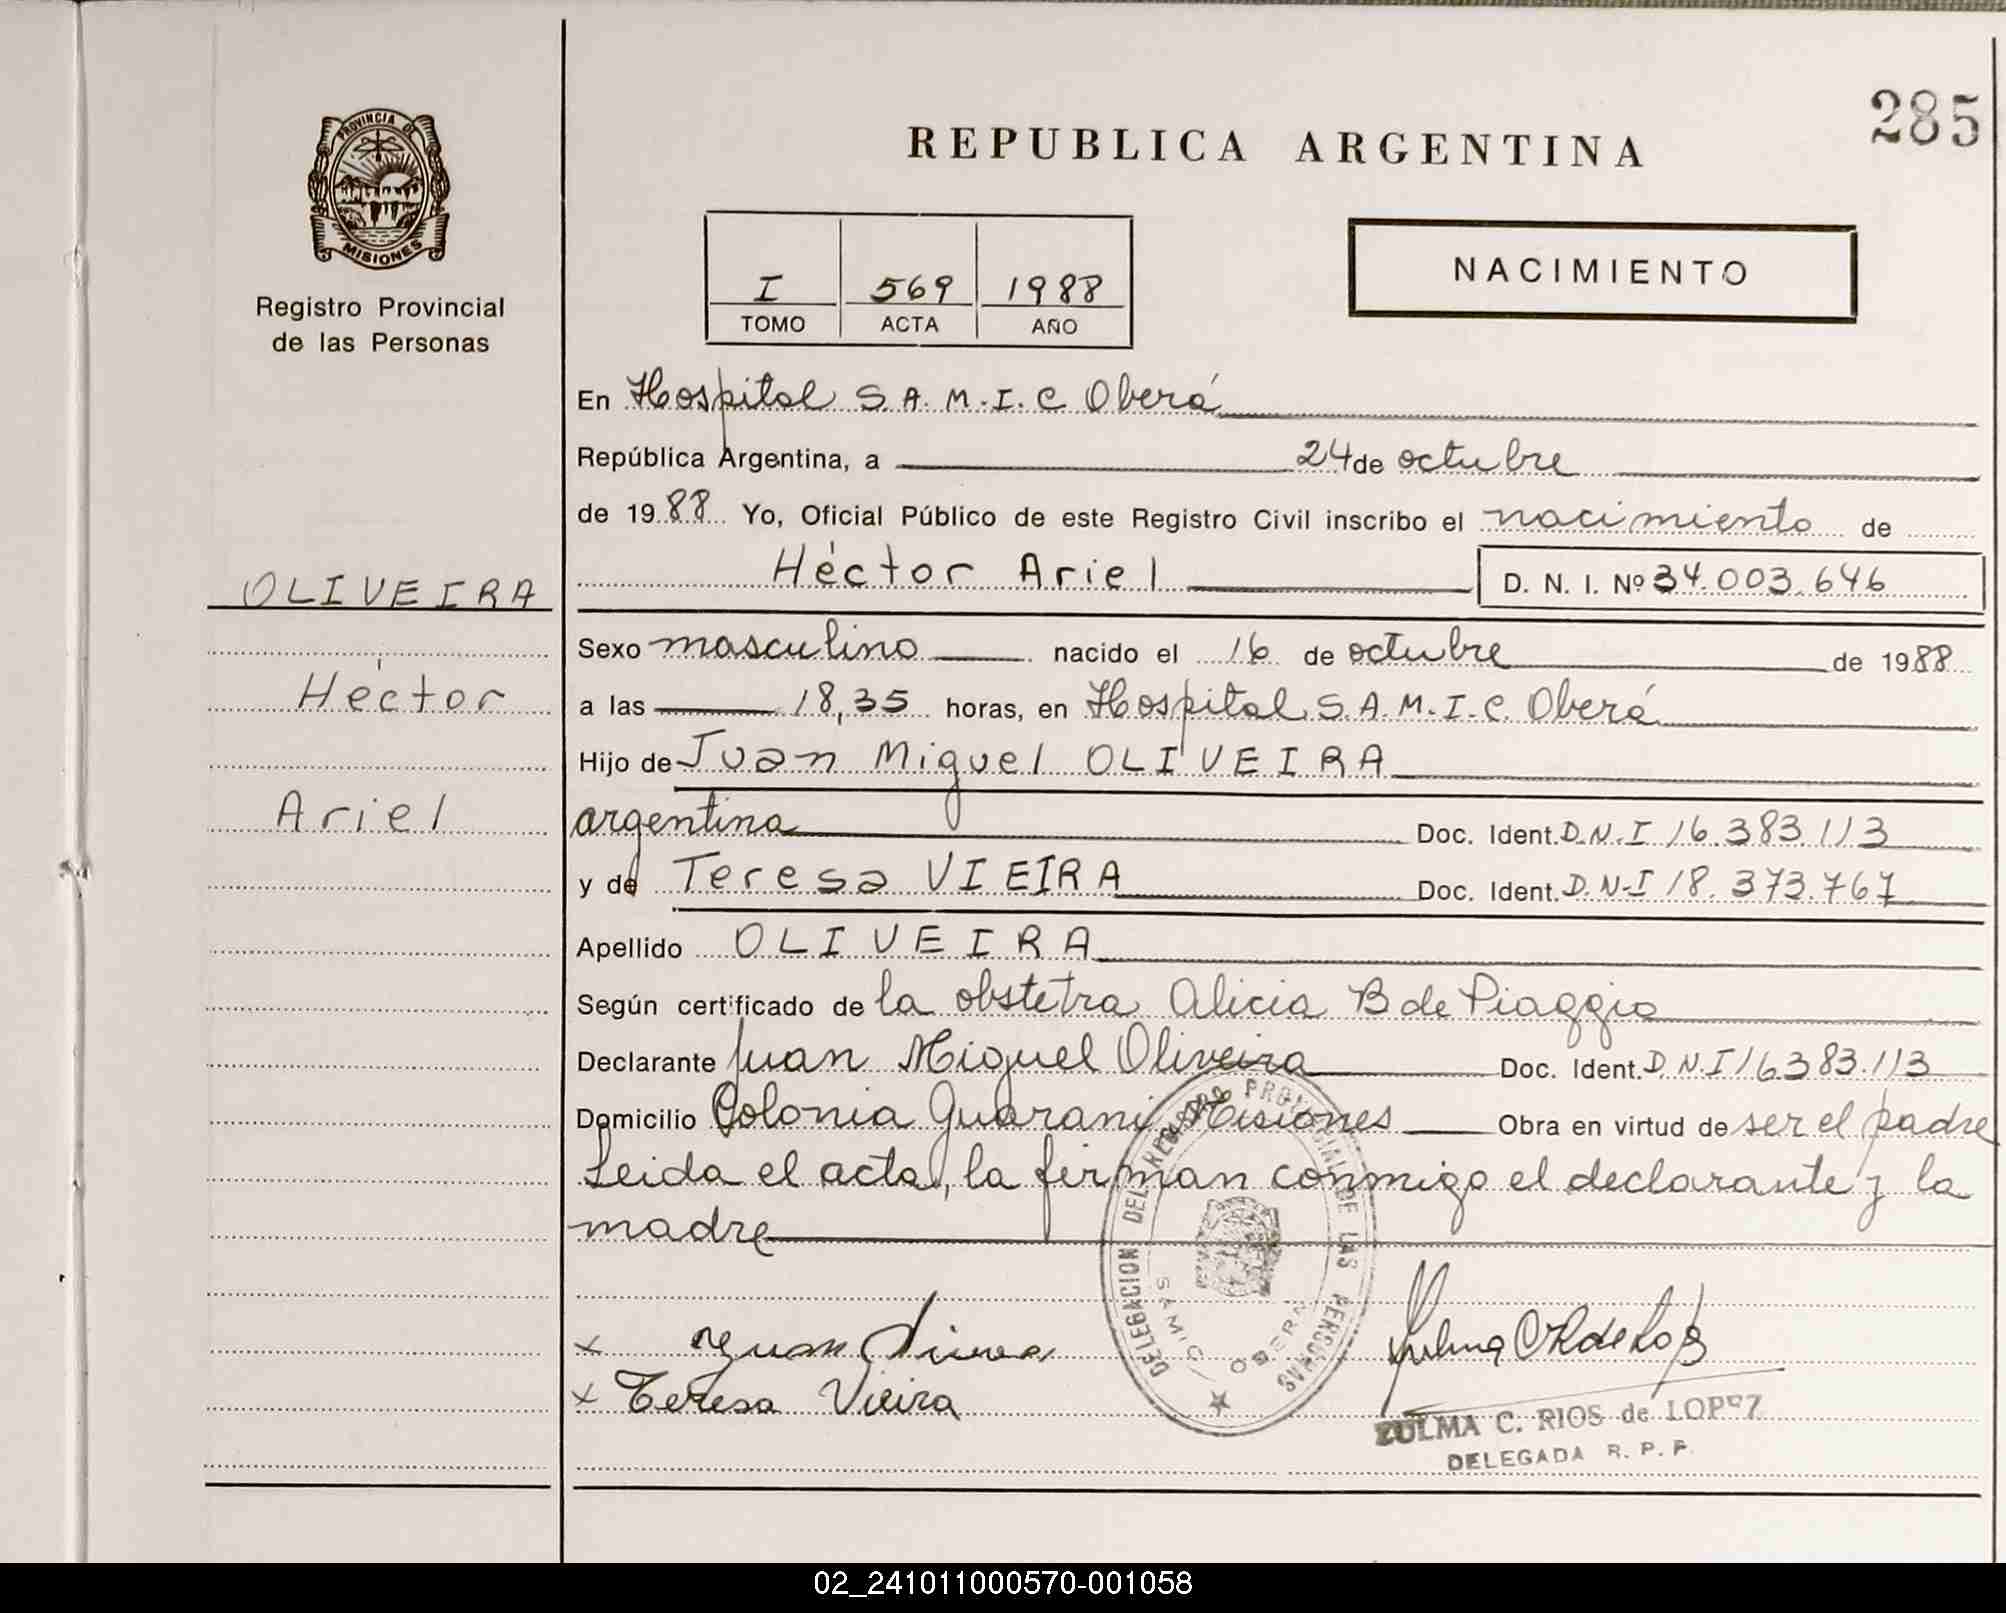 285
REPUBLICA ARGENTINA
PROVINCIA DE
MISIONES
Registro Provincial
de las Personas
I 569 1988
TOMO ACTA AÑO
NACIMIENTO
En Hospital S.A.M.I.C Oberá
República Argentina, a 24 de octubre
de 1988 Yo, Oficial Público de este Registro Civil inscribo el nacimiento de
Héctor Ariel D. N. I. Nº 34.003.646
OLIVEIRA
Héctor
Ariel
Sexo masculino nacido el 16 de octubre de 1988
a las 18,35 horas, en Hospital S.A.M.I.C. Oberá
Hijo de Juan Miguel OLIVEIRA
argentina Doc. Ident. D.N.I 16.383.113
y de Teresa VIEIRA Doc. Ident. D.N-I 18.373.767
Apellido OLIVEIRA
Según certificado de la obstetra Alicia B de Piaggio
Declarante Juan Miguel Oliveira Doc. Ident. D.N.I 16383.113
Domicilio Colonia Guaraní Misiones Obra en virtud de ser el padre
Leida el acta, la firman conmigo el declarante y la
madre
DELEGACION DEL REGISTRO PROVINCIAL DE LAS PERSONAS
SAMIC OBERA
x Juan
x Teresa Vieira
ZULMA C. RIOS de LOPEZ
DELEGADA R. P. P.
02_241011000570-001058